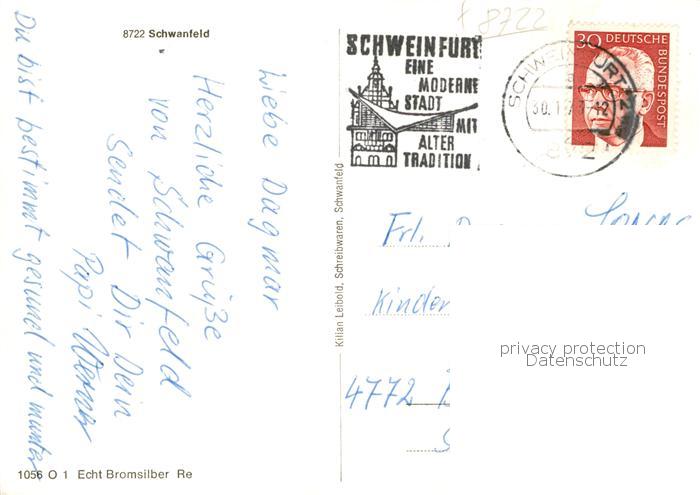 8722 Schwanfeld
Liebe Dagmar
Herzliche Grüße
von Schwanfeld
Sendet Dir Dein
Papi Werner
Du bist bestimmt gesund und munter
1056 O 1 Echt Bromsilber Re
Kilian Leibold, Schreibwaren, Schwanfeld
8722
SCHWEINFURT
EINE
MODERNE
STADT
MIT
ALTER
TRADITION
SCHWEINFURT
30
DEUTSCHE
BUNDESPOST
Frl.
Kinder
4772
privacy protection
Datenschutz